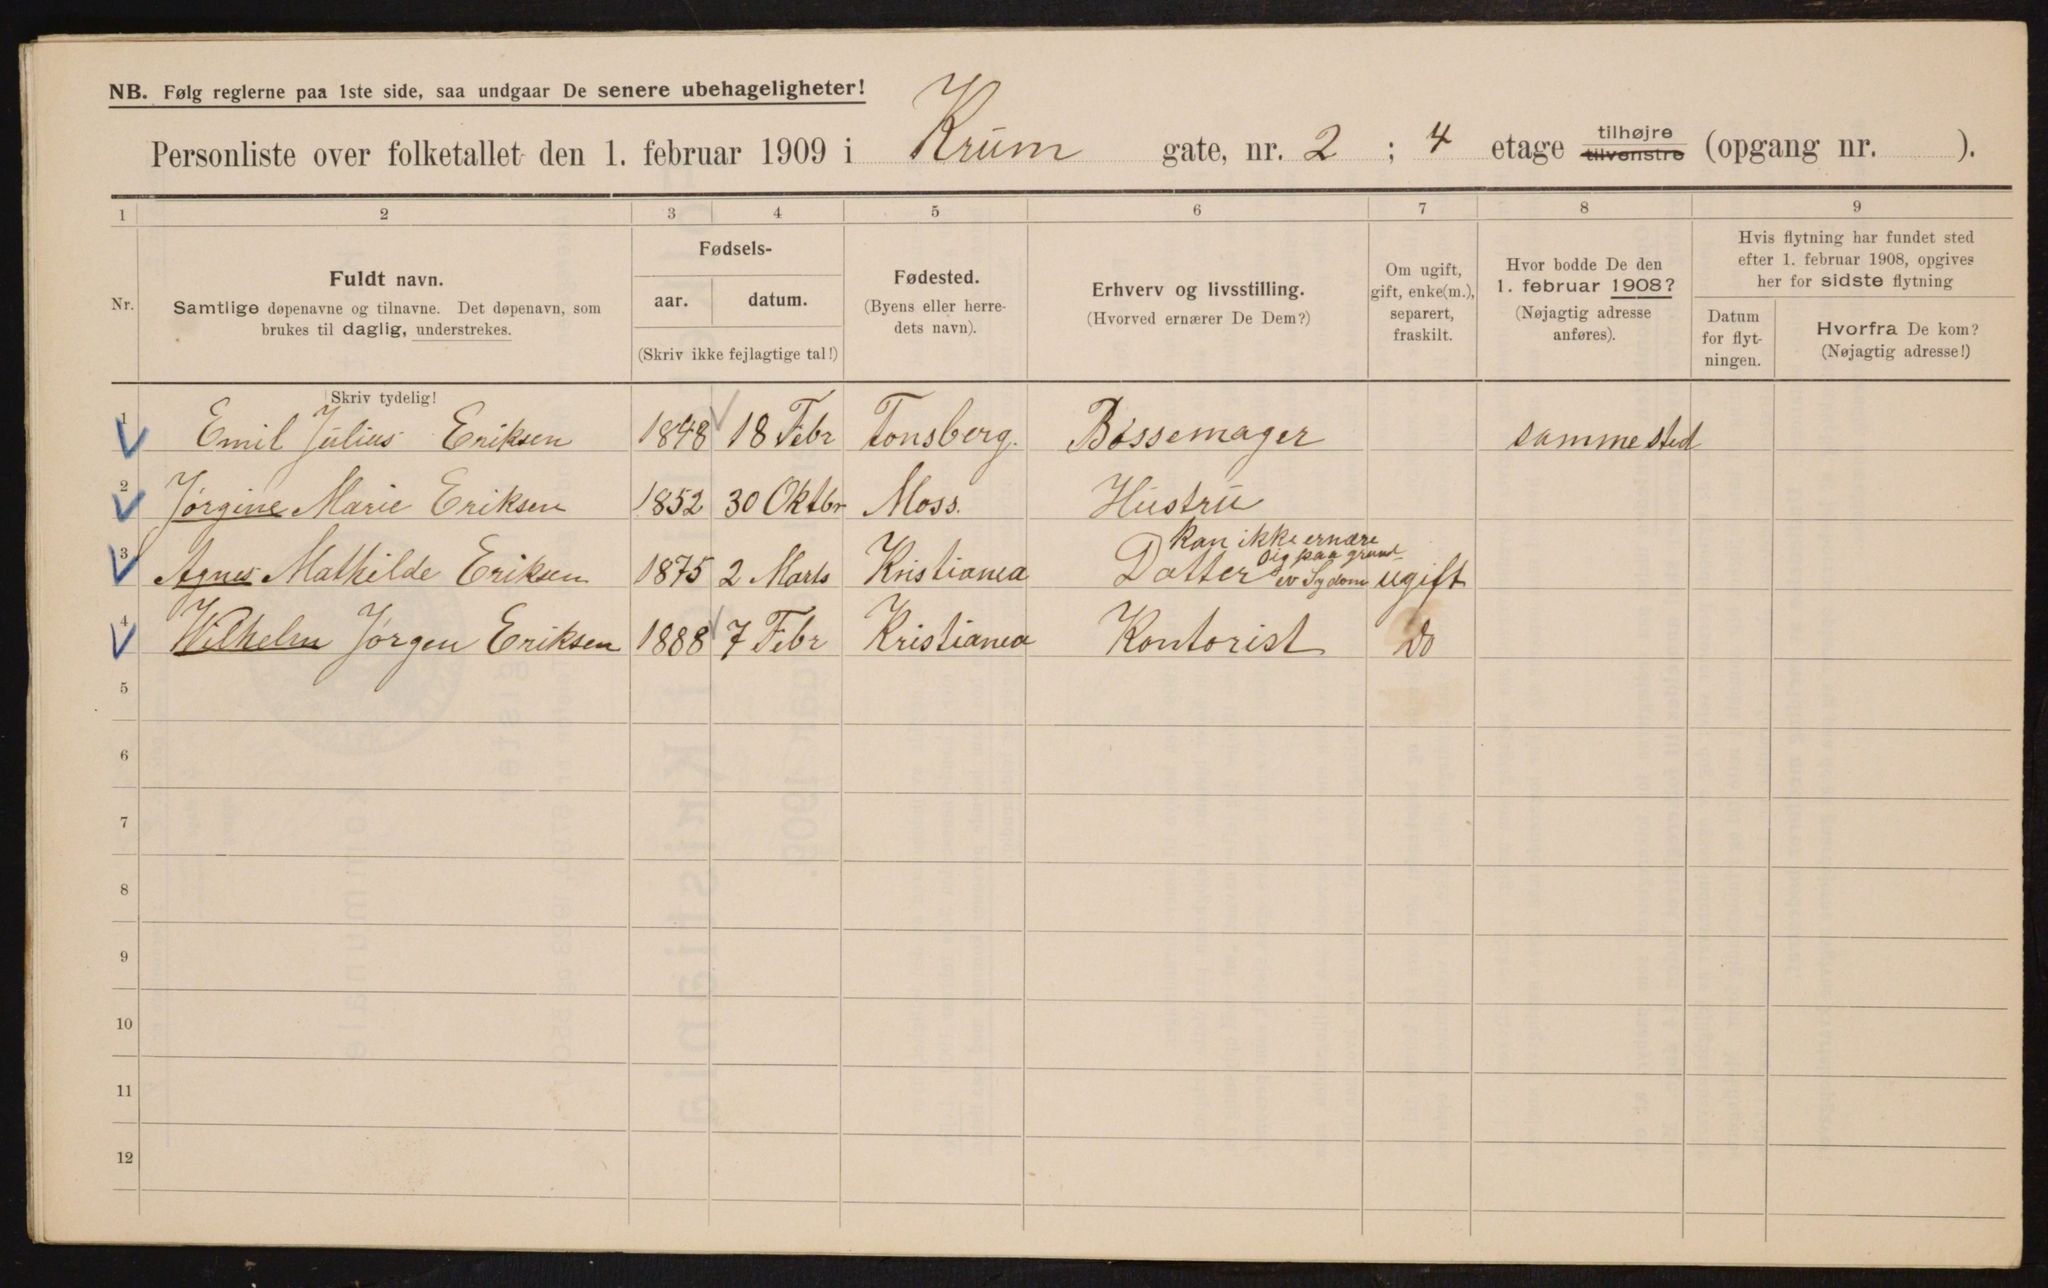 NB. Følg reglerne paa 1ste side, saa undgaar De senere ubehageligheter!
Personliste over folketallet den 1. februar 1909 i Krum gate, nr. 2 ; 4 etage tilhøjre tilvenstre (opgang nr. ).
1 2 3 4 5 6 7 8 9
Nr.
Fuldt navn.
Samtlige døpenavne og tilnavne. Det døpenavn, som
brukes til daglig, understrekes.
Fødsels-
aar. datum.
(Skriv ikke fejlagtige tal!)
Fødested.
(Byens eller herre-
dets navn).
Erhverv og livsstilling.
(Hvorved ernærer De Dem?)
Om ugift,
gift, enke(m.),
separert,
fraskilt.
Hvor bodde De den
1. februar 1908?
(Nøjagtig adresse
anføres).
Hvis flytning har fundet sted
efter 1. februar 1908, opgives
her for sidste flytning
Datum
for flyt-
ningen.
Hvorfra De kom?
(Nøjagtig adresse!)
Skriv tydelig!
1 Emil Julius Eriksen 1848 18 Febr Tonsberg. Bøssemager samme sted
2 Jørgine Marie Eriksen 1852 30 Oktbr Moss. Hustru
3 Agnes Mathilde Eriksen 1875 2 Marts Kristiania Datter kan ikke ernære
sig paa grund
av Sydom ugift
4 Wilhelm Jørgen Eriksen 1888 7 Febr Kristiania Kontorist Do
5
6
7
8
9
10
11
12